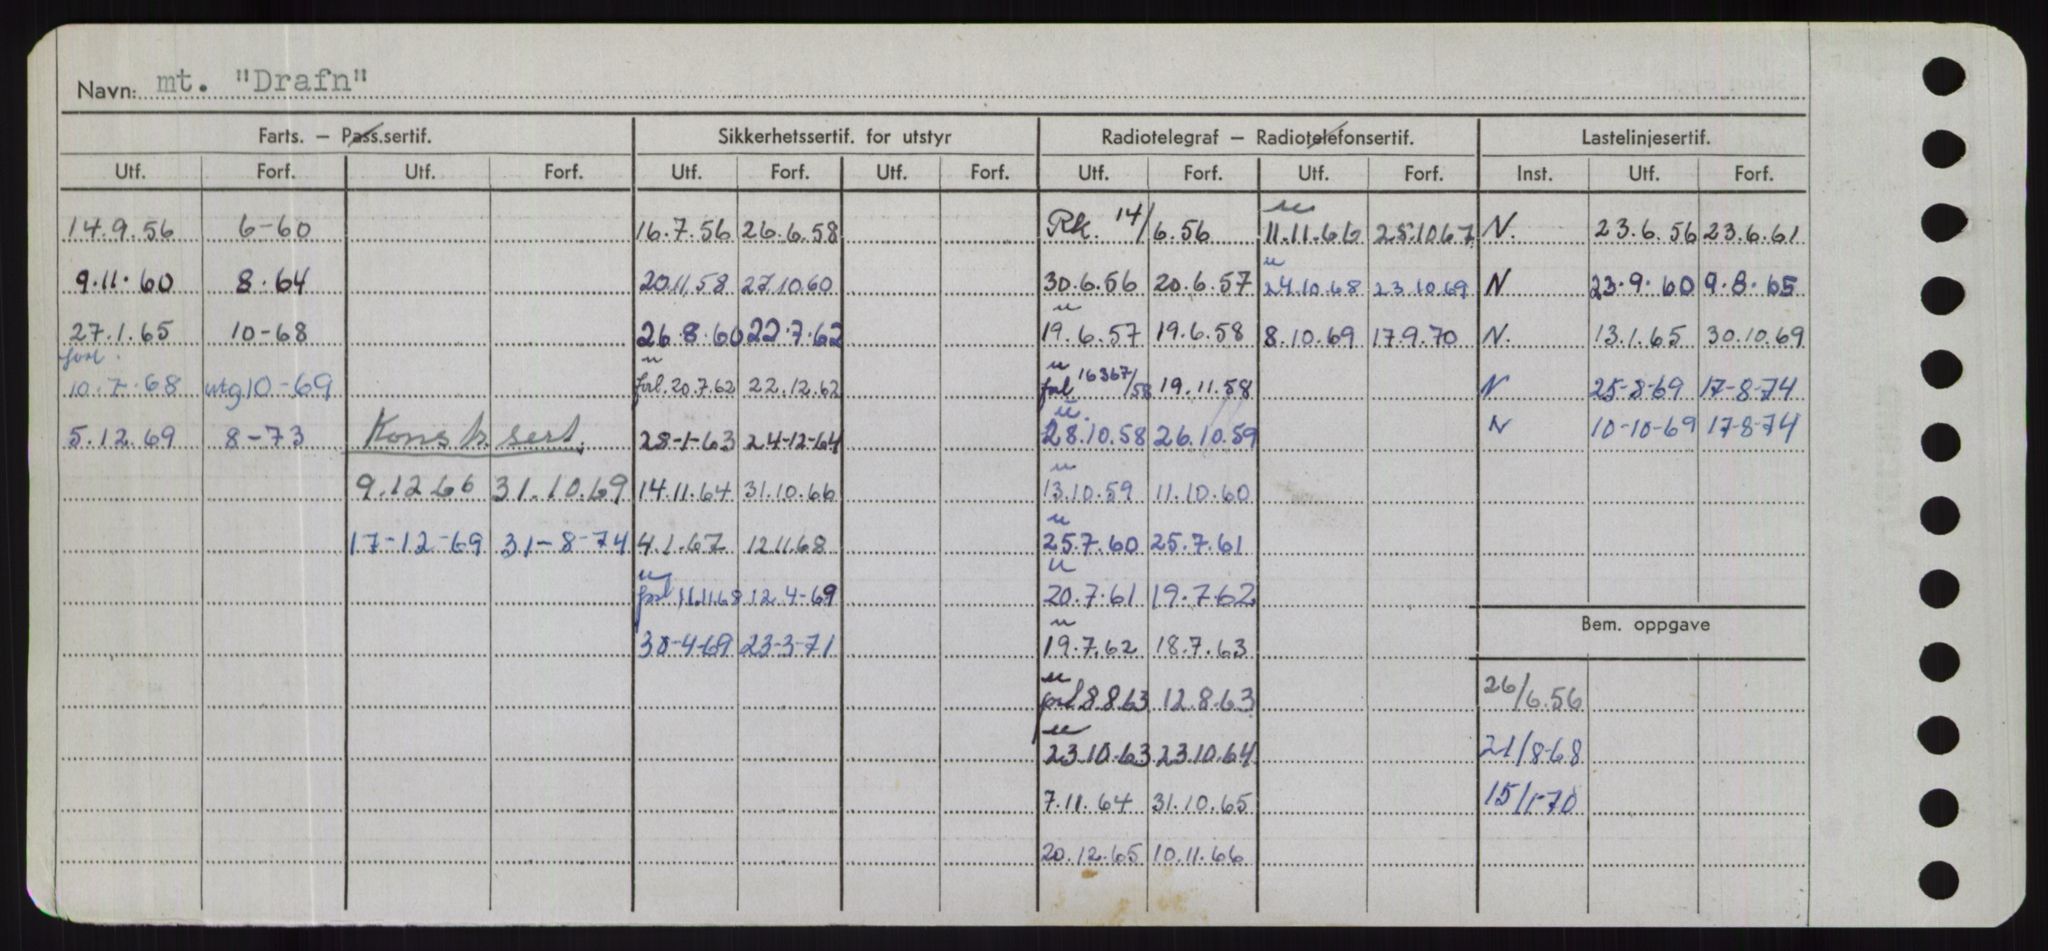 Navn: mt. "Drafn"
Farts. – Pass.sertif. Sikkerhetssertif. for utstyr Radiotelegraf – Radiotelefonsertif. Lastelinjesertif.
Utf. Forf. Utf. Forf. Utf. Forf. Utf. Forf. Utf. Forf. Utf. Forf. Inst. Utf. Forf.
u
14.9.56 6-60 16.7.56 26.6.58 Rk. 14/6.56 11.11.66 25.10.67 N. 23.6.56 23.6.61
u
9.11.60 8.64 20.11.58 27.10.60 30.6.56 20.6.57 24.10.68 23.10.69 N 23.9.60 9.8.65
u
27.1.65 10-68 26.8.60 22.7.62 19.6.57 19.6.58 8.10.69 17.9.70 N. 13.1.65 30.10.69
forl. u u
10.7.68 utg 10-69 forl. 20.7.62 22.12.62 forl 16367/58 19.11.58 N 25-8-69 17-8-74
u.
5.12.69 8-73 Konstr. sert. 28-1-63 24-12-64 28.10.58 26.10.59 N 10-10-69 17-8-74
u
9.12.66 31.10.69 14.11.64 31.10.66 13.10.59 11.10.60
u
17-12-69 31-8-74 4.1.67 12.11.68 25.7.60 25.7.61
u u
forl 11.11.68 12.4-69 20.7.61 19.7.62
Bem. oppgave
u
30-4-69 23-3-71 19.7.62 18.7.63
u
forl 8.8.63 12.8.63 26/6.56
u
23.10.63 23.10.64 21/8-68
7.11.64 31.10.65 15/1-70
20.12.65 10.11.66